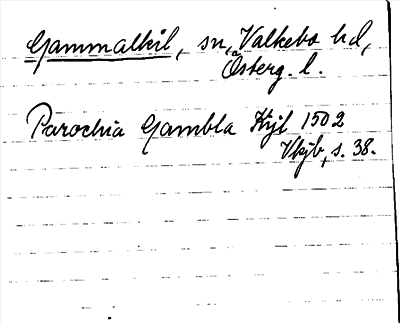 Gammalkil, sn, Valkebo hd,
Österg. l.
Parochia Gambla Kijl 1502
Vkjb, s. 38.